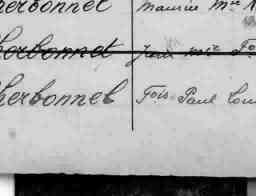 herbonnel Maurice Mie
herbonnet Jean Mie Fo
herbonnel Fois Paul Lou